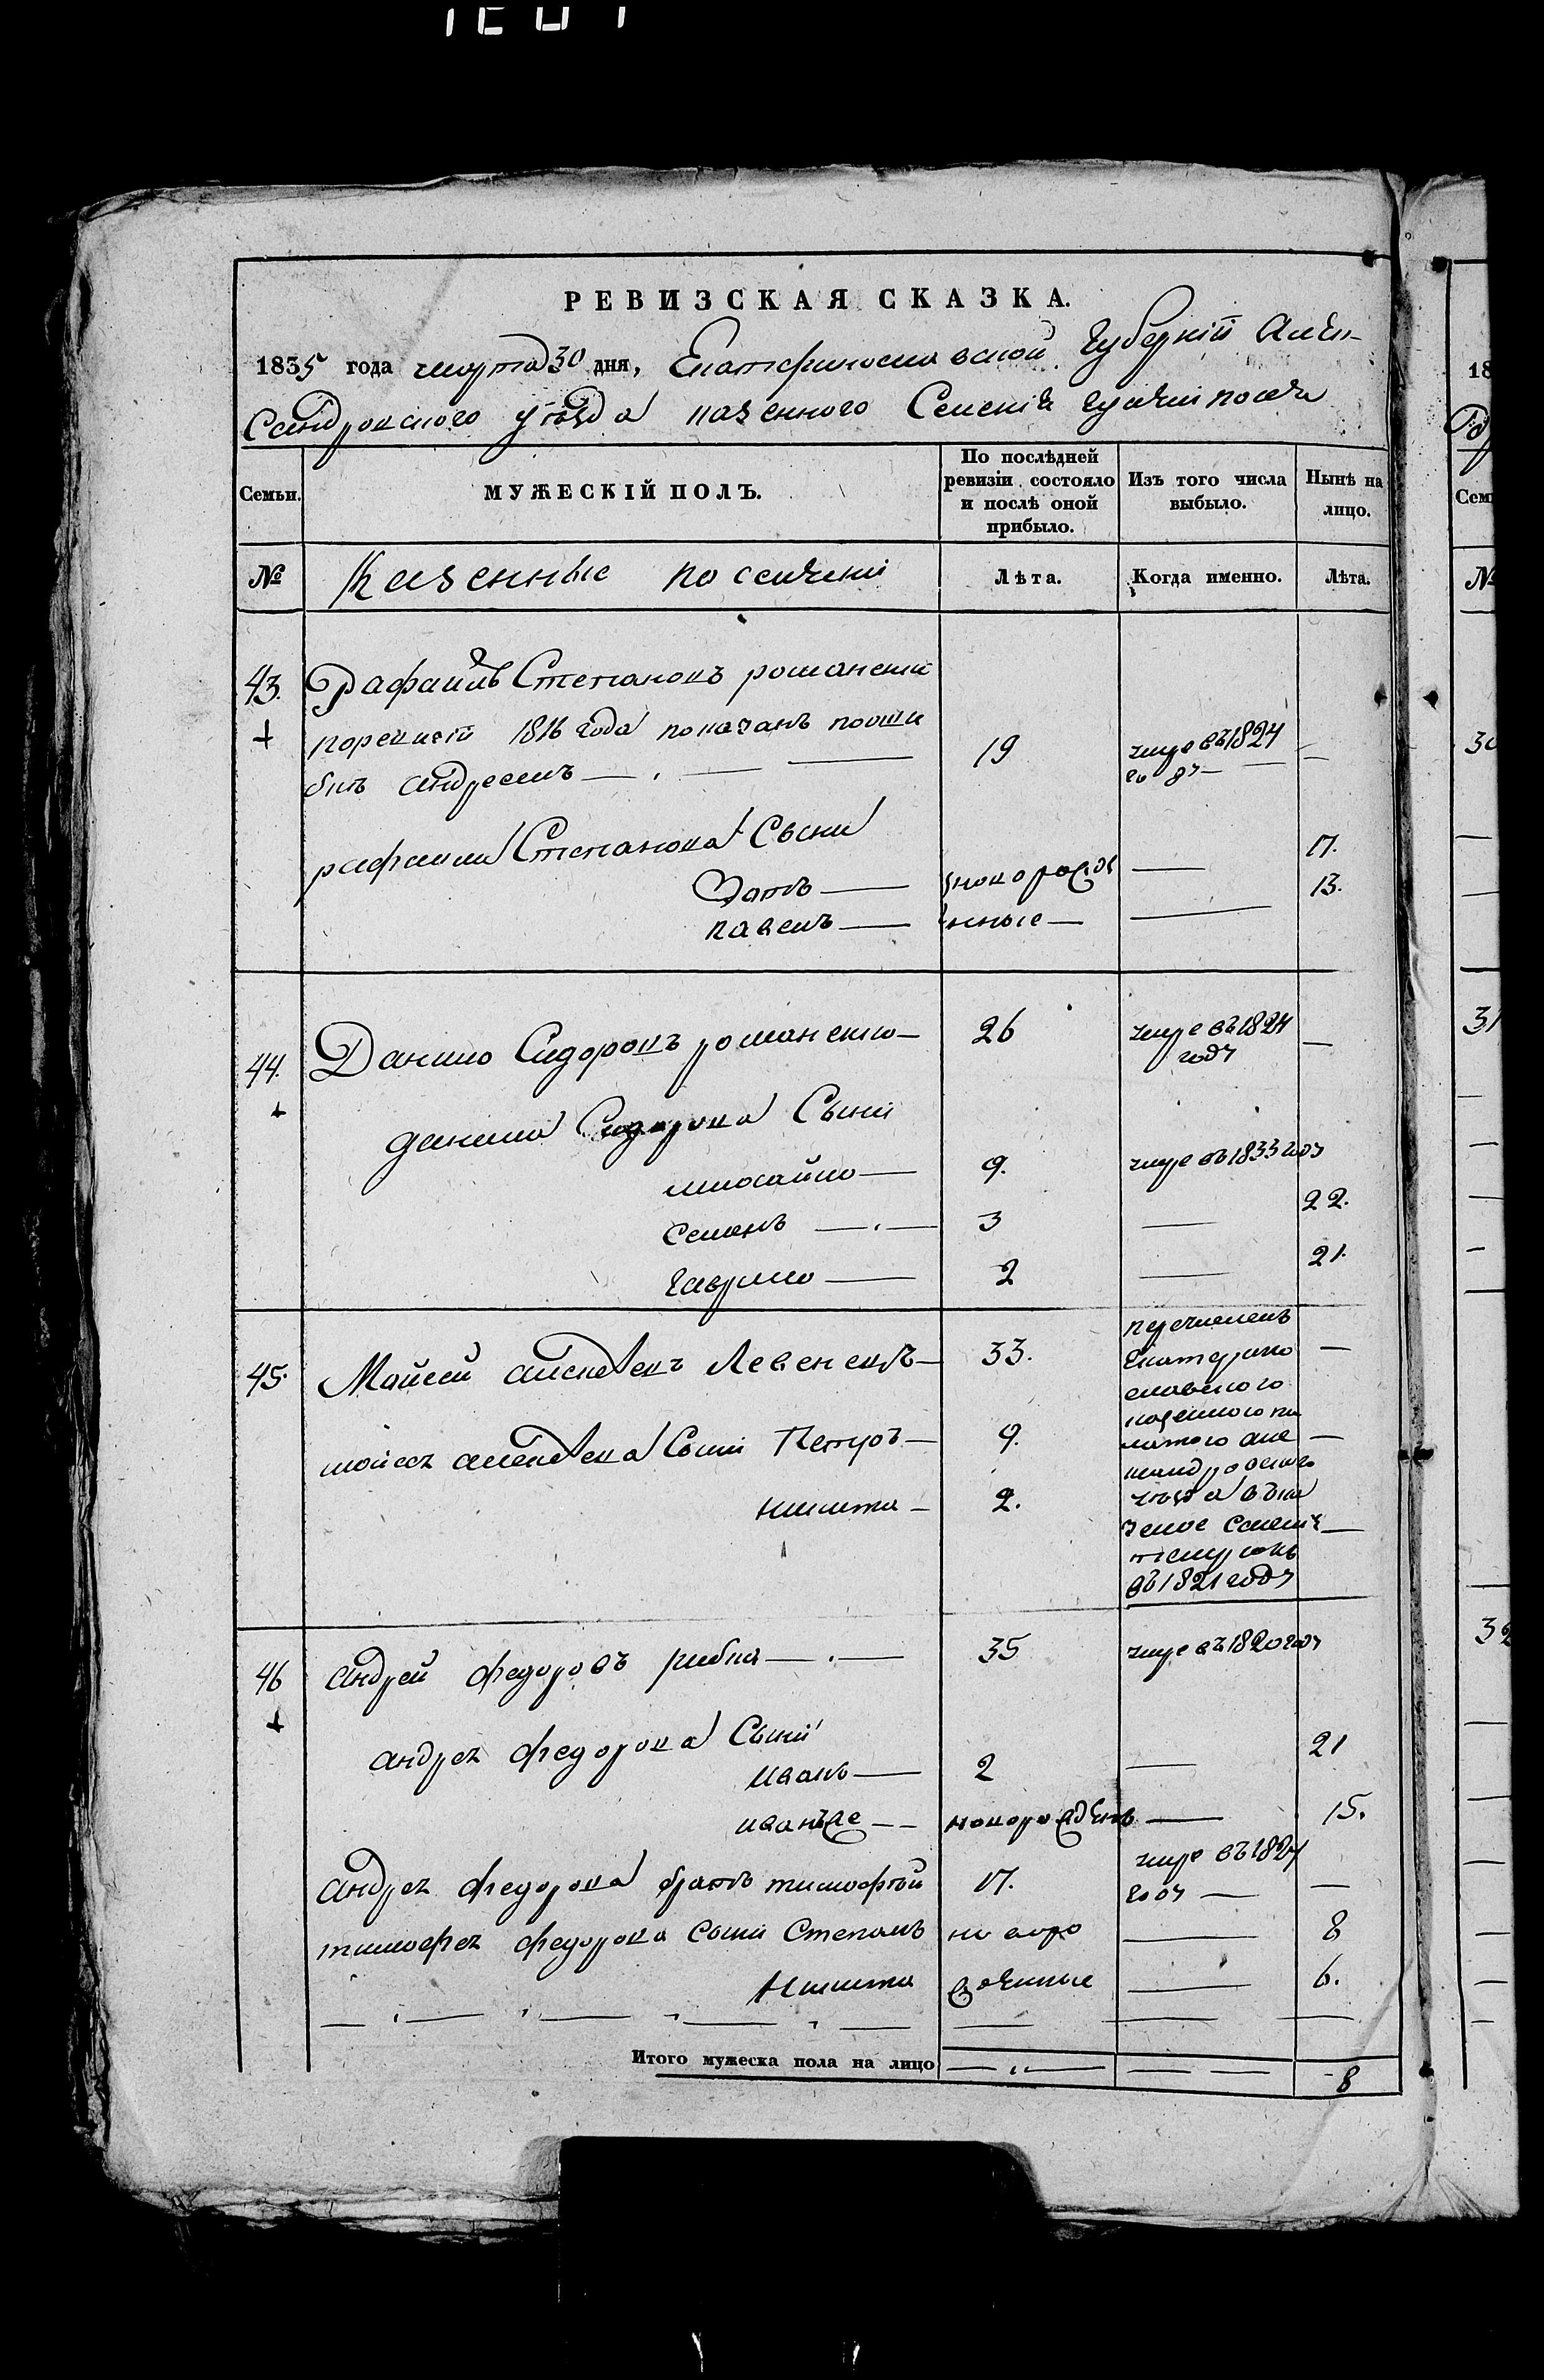 РЕВИЗСКАЯ СКАЗКА.
1835 года марта 30 дня, Екатеринославской Губернїи Алек-
сандровского уѣзда казенного Селенїя Гуляйполя
Семьи.
МУЖЕСКІЙ ПОЛЪ.
По послѣдней
ревизіи состояло
и послѣ оной
прибыло.
Изъ того числа
выбыло.
Нынѣ на
лицо.
№
Казенные поселяни
Лѣта.
Когда именно.
Лѣта.
43. Рафаилъ Степановъ романенко
по ревизїи 1816 года показанъ
андреемъ 19 умре въ 1824 году —
рафаила Степанова Сыни
17.
новорожде
13.
павелъ — нные —
44. Данило Сидоровъ романенко — 26 умре въ 1824 году —
данила Сидорова Сыни
михайло — 9. умре въ 1833 году
семенъ — 3 — 22.
гаврило — 2 — 21.
45. Мойсей Левенецъ — 33. перечисленъ
Екатерино
славского
казенного па
мойсея Сыни Петръ — 9.
Александровского
никита — 2. уѣзда
селенїе
въ 1821 году
46 андрей федоровъ рибка — 35 умре въ 1820 году
андрея федорова Сыни
иванъ — 2 — 21
иванъ же — новорожденъ — 15.
андрея федорова братъ тимофѣй 17. умре въ 1824 году —
тимофея федорова сыни Степанъ новоро — 8
Никита жденные — 6.
Итого мужеска пола на лицо — — 8
18
Сем
№
30
31
32